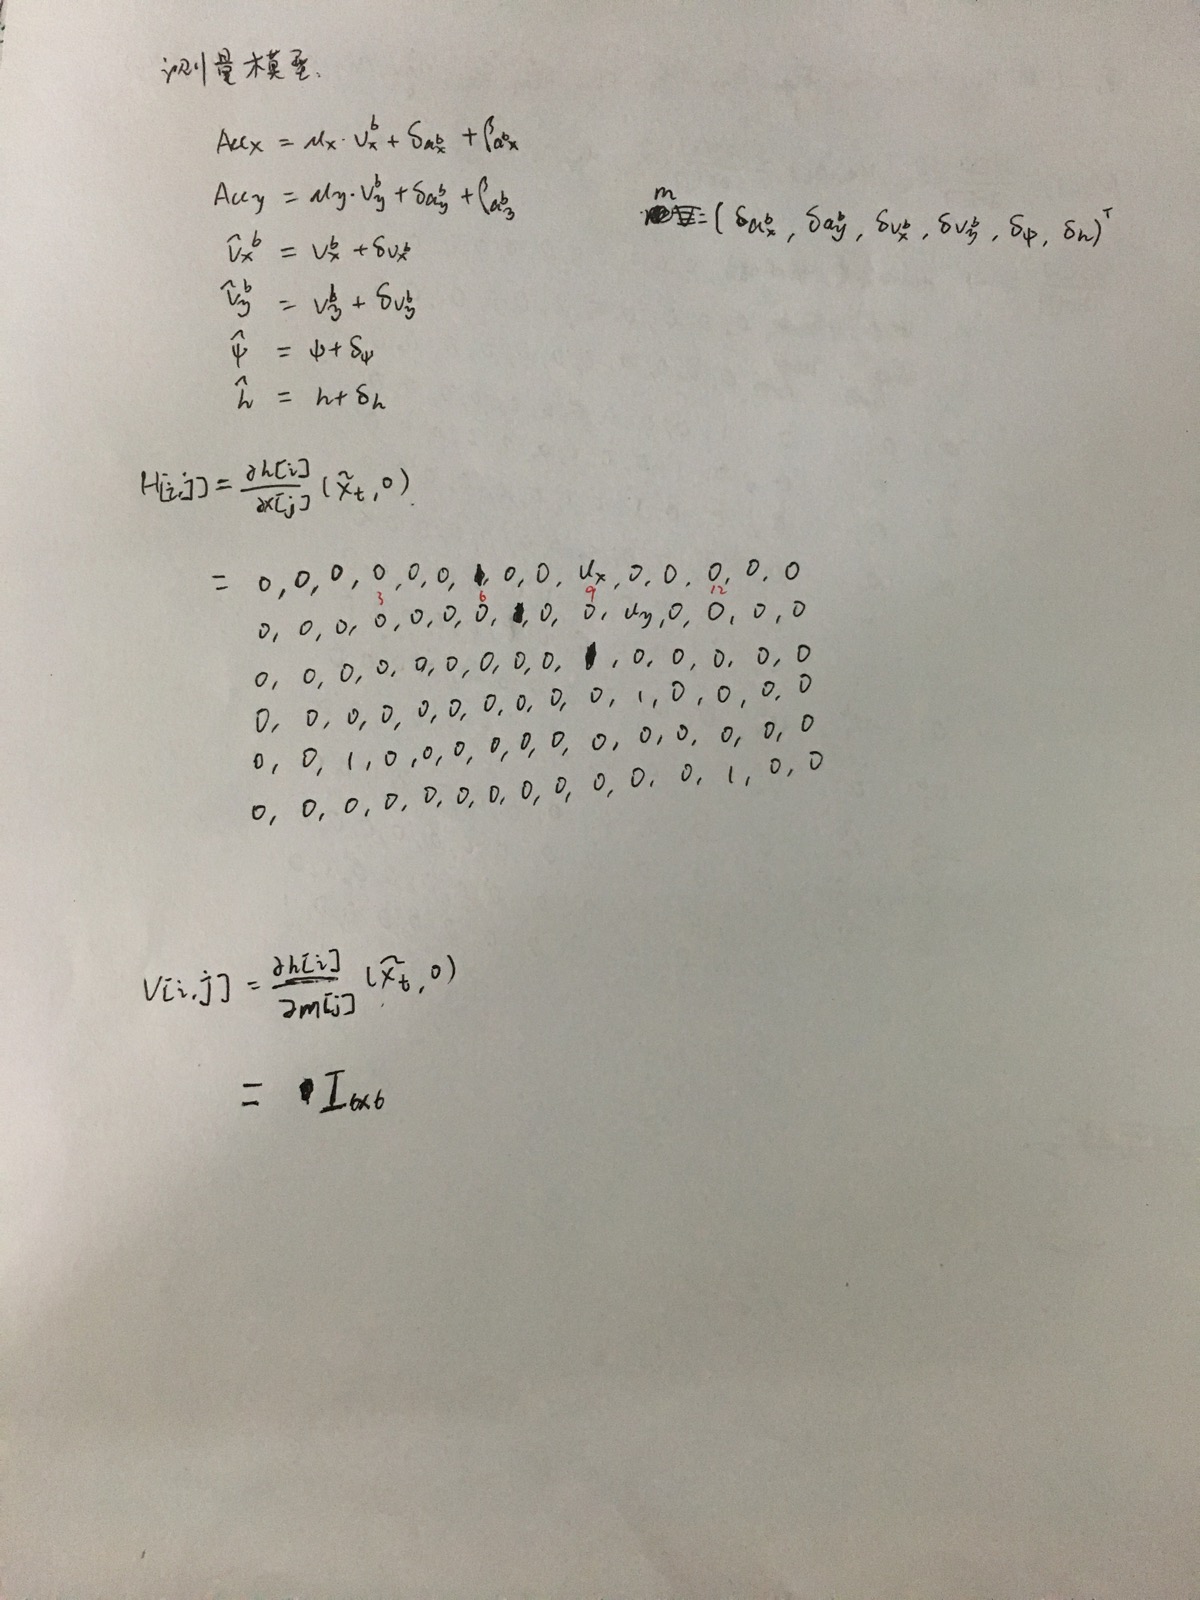 测量模型.
Accx = μx · v_x^b + δa_x^b + βa_x^b
Accy = μy · v_y^b + δa_y^b + βa_y^b
m = ( δa_x^b , δa_y^b , δv_x^b , δv_y^b , δψ , δh )^T
v̂_x^b = v_x^b + δv_x^b
v̂_y^b = v_y^b + δv_y^b
ψ̂ = ψ + δψ
ĥ = h + δh
H[i,j] = ∂h[i]/∂x[j] (x̃_t, 0).
= 0, 0, 0, 0, 0, 0, 1, 0, 0, μx, 0, 0, 0, 0, 0
3 6 9 12
0, 0, 0, 0, 0, 0, 0, 1, 0, 0, μy, 0, 0, 0, 0
0, 0, 0, 0, 0, 0, 0, 0, 0, 1, 0, 0, 0, 0, 0
0, 0, 0, 0, 0, 0, 0, 0, 0, 0, 1, 0, 0, 0, 0
0, 0, 1, 0, 0, 0, 0, 0, 0, 0, 0, 0, 0, 0, 0
0, 0, 0, 0, 0, 0, 0, 0, 0, 0, 0, 0, 1, 0, 0
V[i,j] = ∂h[i]/∂m[j] (x̃_t, 0)
= I_6×6